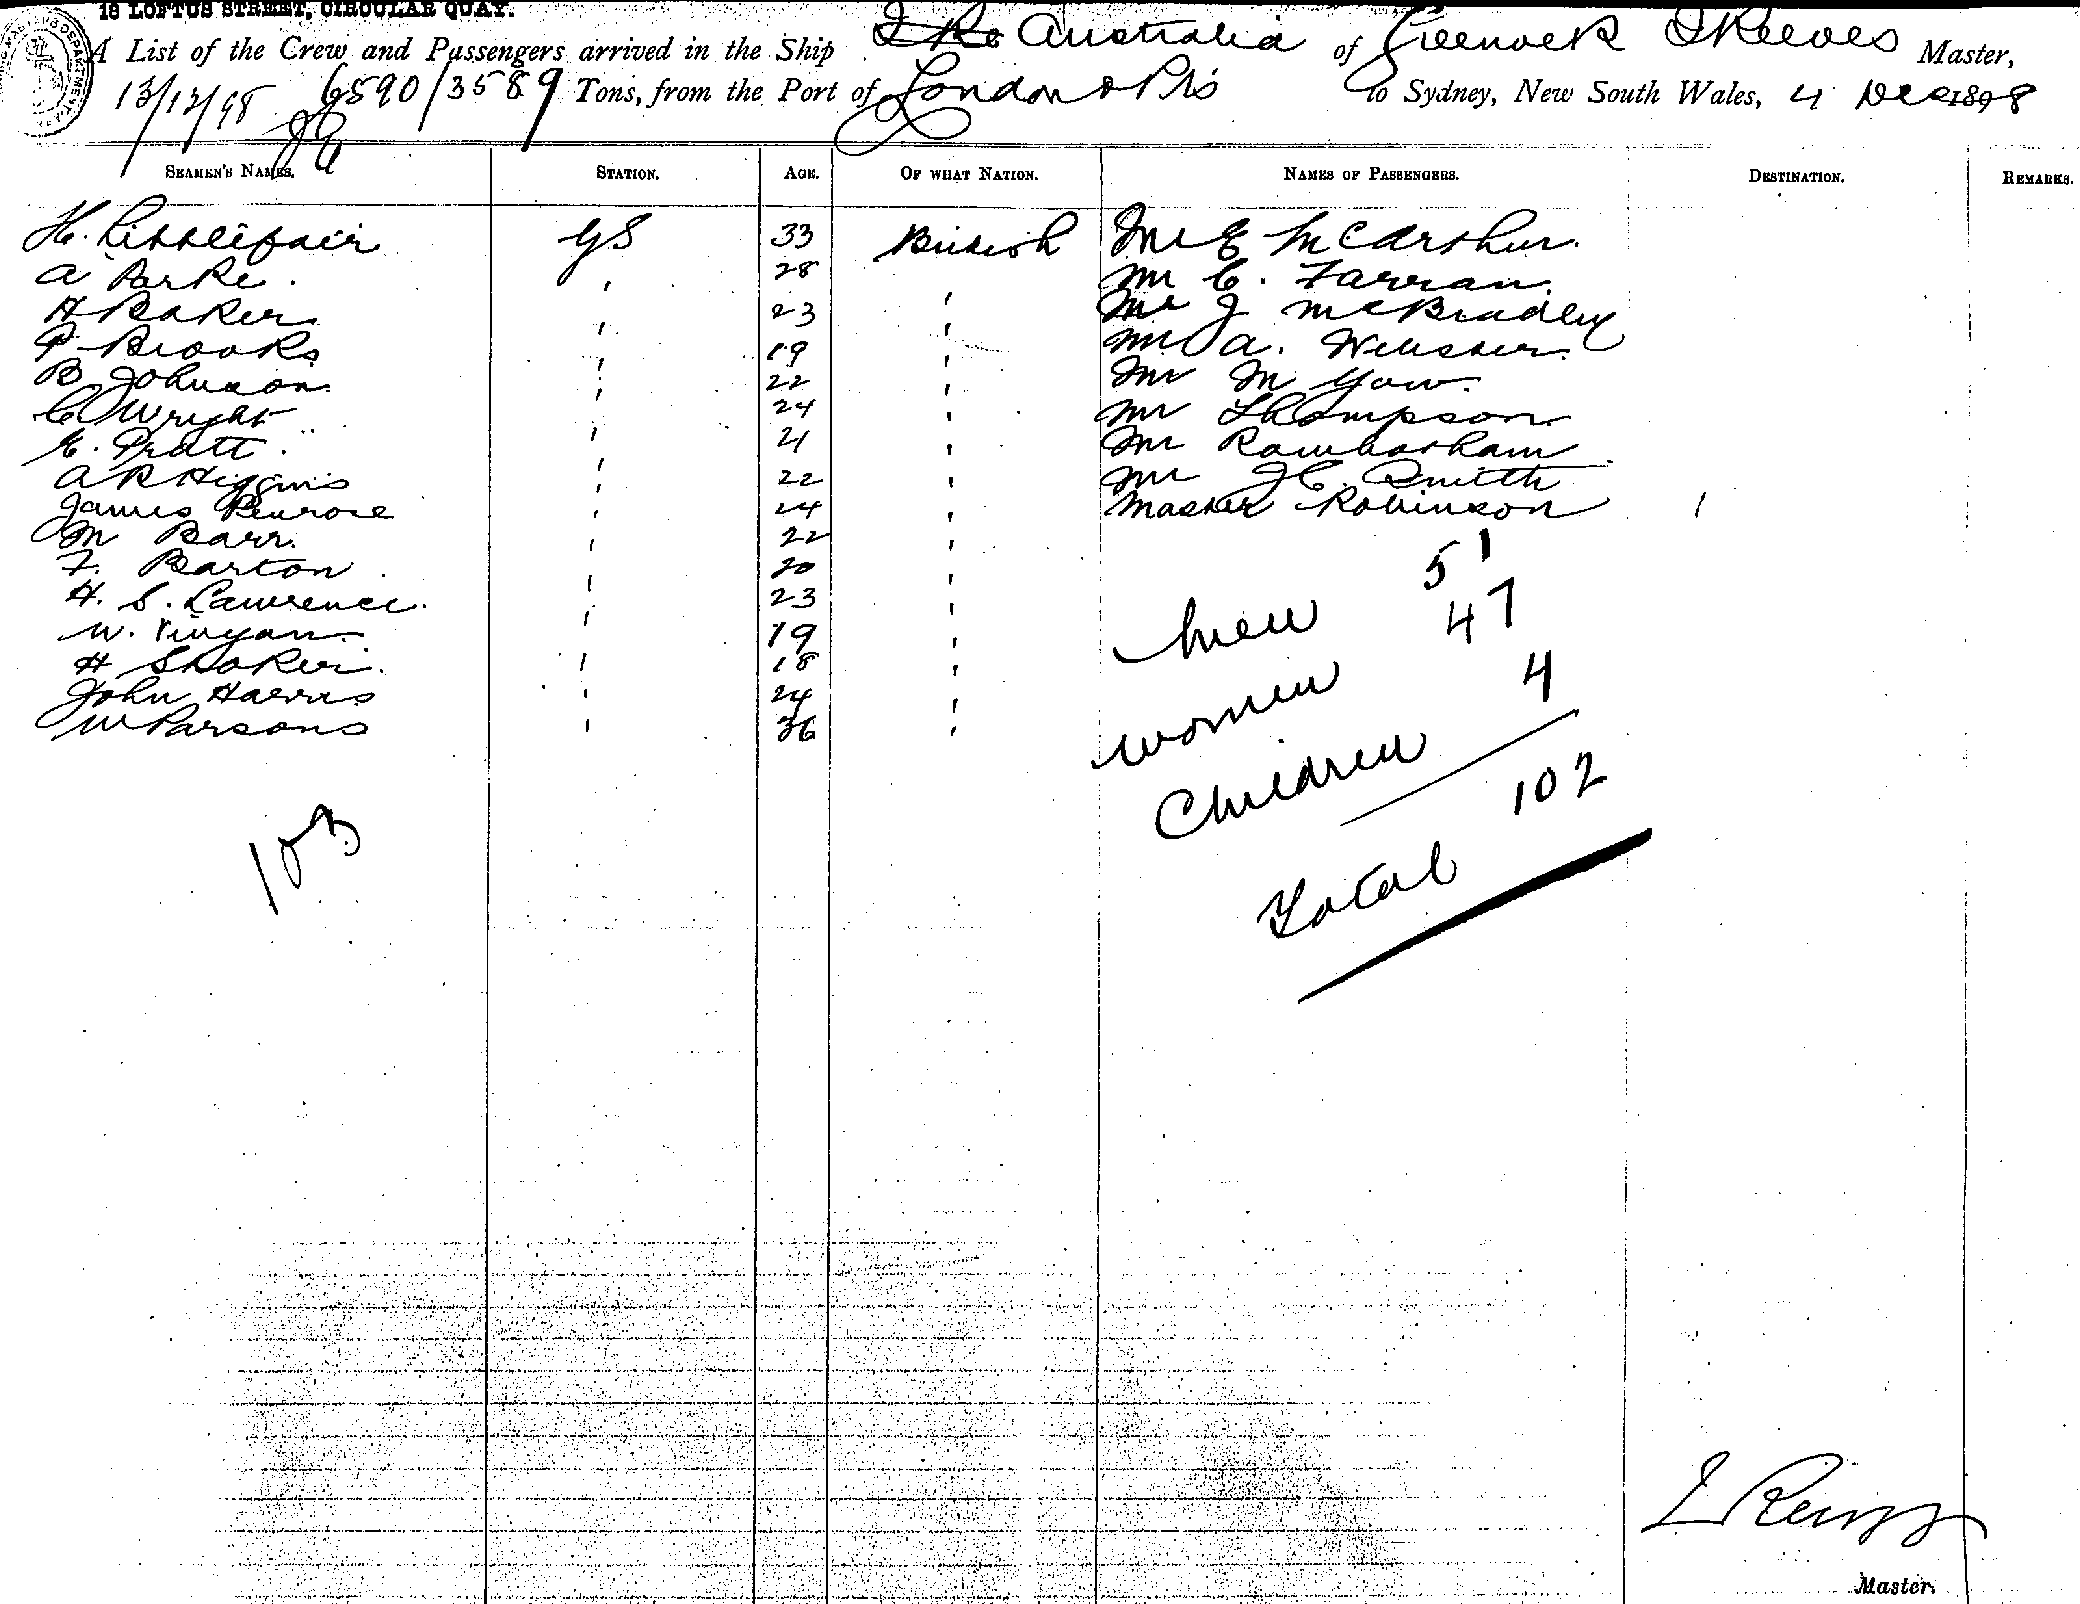 18 LOFTUS STREET, CIRCULAR QUAY.
A List of the Crew and Passengers arrived in the Ship Australia of Greenock Reeves Master,
13/12/98 6590/3589 Tons, from the Port of London & Pts to Sydney, New South Wales, 4 Dec 1898
SEAMEN'S NAMES. STATION. AGE. OF WHAT NATION. NAMES OF PASSENGERS. DESTINATION. REMARKS.
H. Littlefair GS 33 British Mr E McArthur.
A Parke. " 28 " Mr C. Farran.
H Baker " 23 " Mr J McBradley
P Brooks " 19 " Mr A. Webster.
B Johnson " 22 " Mr M Yow.
C Wright " 24 " Mr Thompson
E. Pratt. " 21 " Mr Rowbotham
A R Higgins " 22 " Mr J C Smith
James Penrose " 24 " Master Robinson 1
M Barr. " 22 "
F. Barton " 20 "
H. S. Lawrence. " 23 "
W. " 19 "
H " 18 "
John Harris " 24 "
W Parsons " 36 "
Men 51
Women 47
Children 4
Total 102
103
Reeves
Master.